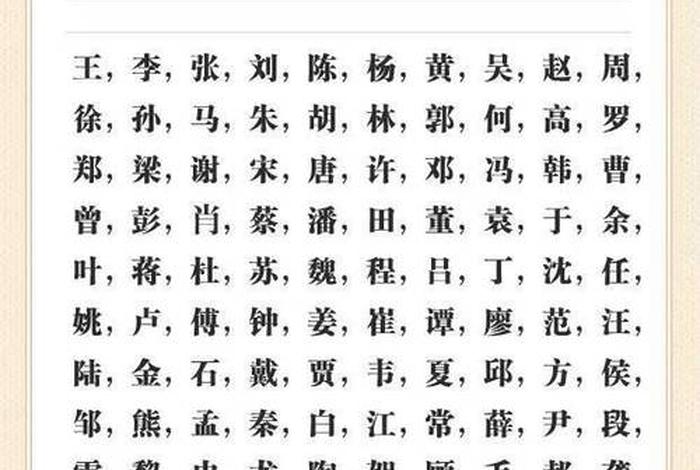 王，李，张，刘，陈，杨，黄，吴，赵，周，
徐，孙，马，朱，胡，林，郭，何，高，罗，
郑，梁，谢，宋，唐，许，邓，冯，韩，曹，
曾，彭，肖，蔡，潘，田，董，袁，于，余，
叶，蒋，杜，苏，魏，程，吕，丁，沈，任，
姚，卢，傅，钟，姜，崔，谭，廖，范，汪，
陆，金，石，戴，贾，韦，夏，邱，方，侯，
邹，熊，孟，秦，白，江，常，薛，尹，段，